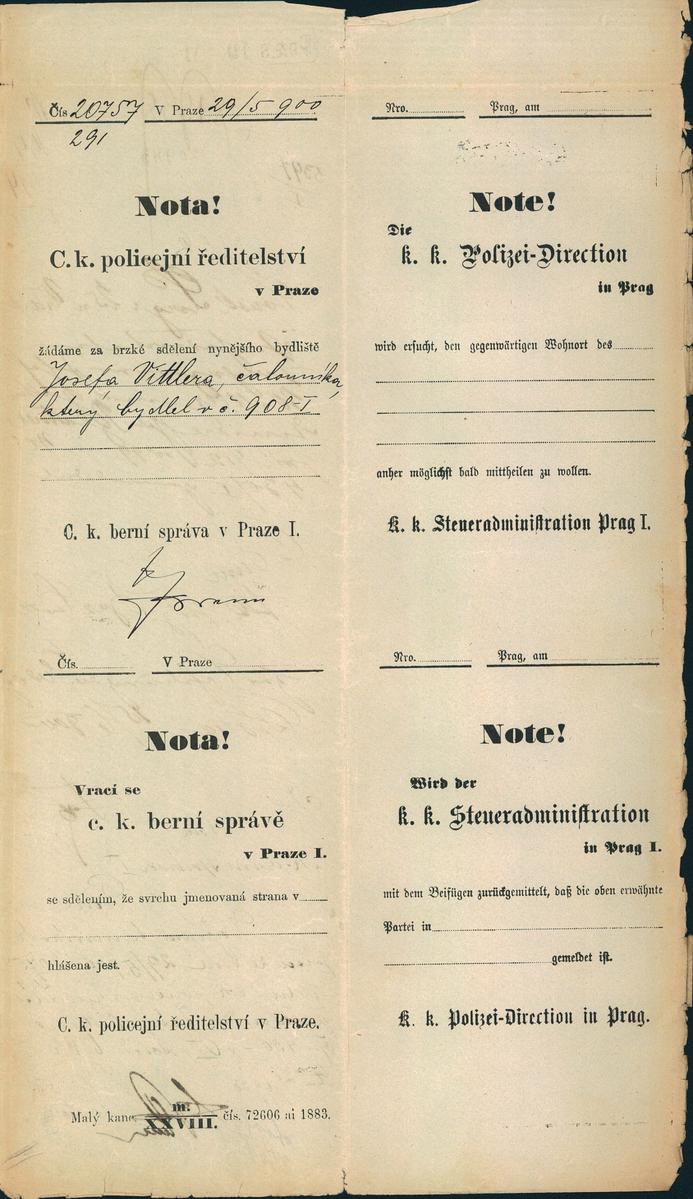 Čís 20757 V Praze 29/5 900
291
Nota!
C. k. policejní ředitelství
v Praze
žádáme za brzké sdělení nynějšího bydliště
Josefa Vittlera, čalouníka,
který bydlel v č. 908-I
C. k. berní správa v Praze I.
Čís. V Praze
Nota!
Vrací se
c. k. berní správě
v Praze I.
se sdělením, že svrchu jmenovaná strana v
hlášena jest.
C. k. policejní ředitelství v Praze.
Malý kanc. m. XXVIII. čís. 72606 ai 1883.
Nro. Prag, am
Note!
Die
k. k. Polizei-Direction
in Prag
wird ersucht, den gegenwärtigen Wohnort des
anher möglichst bald mittheilen zu wollen.
K. k. Steueradministration Prag I.
Nro. Prag, am
Note!
Wird der
k. k. Steueradministration
in Prag I.
mit dem Beifügen zurückgemittelt, daß die oben erwähnte
Partei in
gemeldet ist.
K. k. Polizei-Direction in Prag.